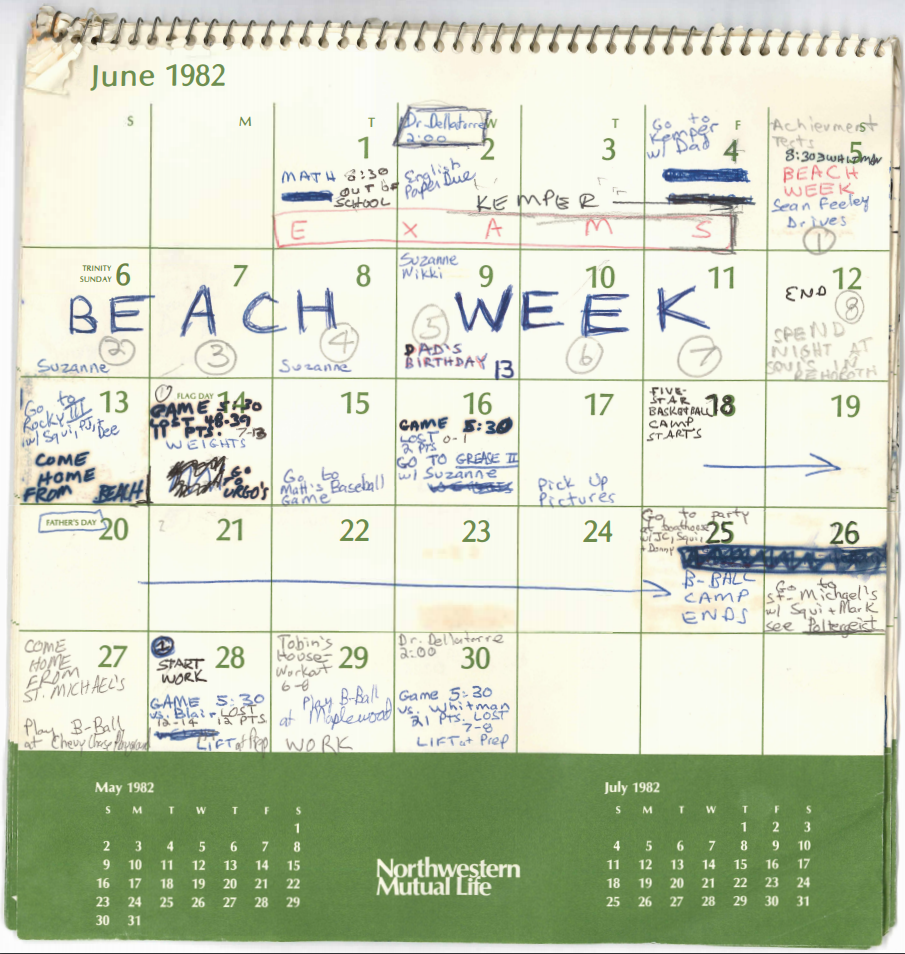 June 1982
S M T W T F S
1
MATH 8:30
OUT OF
SCHOOL
Dr. Dellatorre
2:00
2
English
Paper Due
3
KEMPER
Go to
Kemper
w/ Dad
4
Achievment
Tests
8:30 WHITMAN
5
BEACH
WEEK
Sean Feeley
Drives
1
E X A M S
TRINITY
SUNDAY 6
7
8
Suzanne
Nikki
9
10
11
12
END
8
BEACH WEEK
2
3
4
5
6
7
Suzanne
Suzanne
DAD'S
BIRTHDAY
13
SPEND
NIGHT AT
SQUIS IN
REHOBOTH
13
Go to
Rocky III
w/ Squi, PJ,
Dee
COME
HOME
FROM BEACH
FLAG DAY
14
GAME 5:30
LOST 48-39
11 PTS. 7-13
WEIGHTS
GO
TO
URGO'S
15
Go to
Matt's Baseball
Game
16
GAME 5:30
LOST 0-1
2 PTS
GO TO GREASE II
w/ Suzanne
17
Pick Up
Pictures
FIVE-
STAR
BASKETBALL
CAMP
START'S
18
19
FATHER'S DAY
20
21
22
23
24
Go to party
at boathouse
w/ JC, Squi,
+ Donny
25
B-BALL
CAMP
ENDS
26
Go to
St. Michael's
w/ Squi + Mark
see Poltergeist
COME
HOME
FROM
ST. MICHAEL'S
27
Play B-Ball
at Chevy Chase Playground
1
28
START
WORK
GAME 5:30
vs. Blair LOST
12-14 12 PTS
LIFT at Prep
Tobin's
House-
Workout
6-8
29
Play B-Ball
at Maplewood
WORK
Dr. Dellatorre
2:00
30
Game 5:30
vs. Whitman
21 Pts. LOST
7-8
LIFT at Prep
May 1982
S M T W T F S
1
2 3 4 5 6 7 8
9 10 11 12 13 14 15
16 17 18 19 20 21 22
23 24 25 26 27 28 29
30 31
Northwestern
Mutual Life
July 1982
S M T W T F S
1 2 3
4 5 6 7 8 9 10
11 12 13 14 15 16 17
18 19 20 21 22 23 24
25 26 27 28 29 30 31